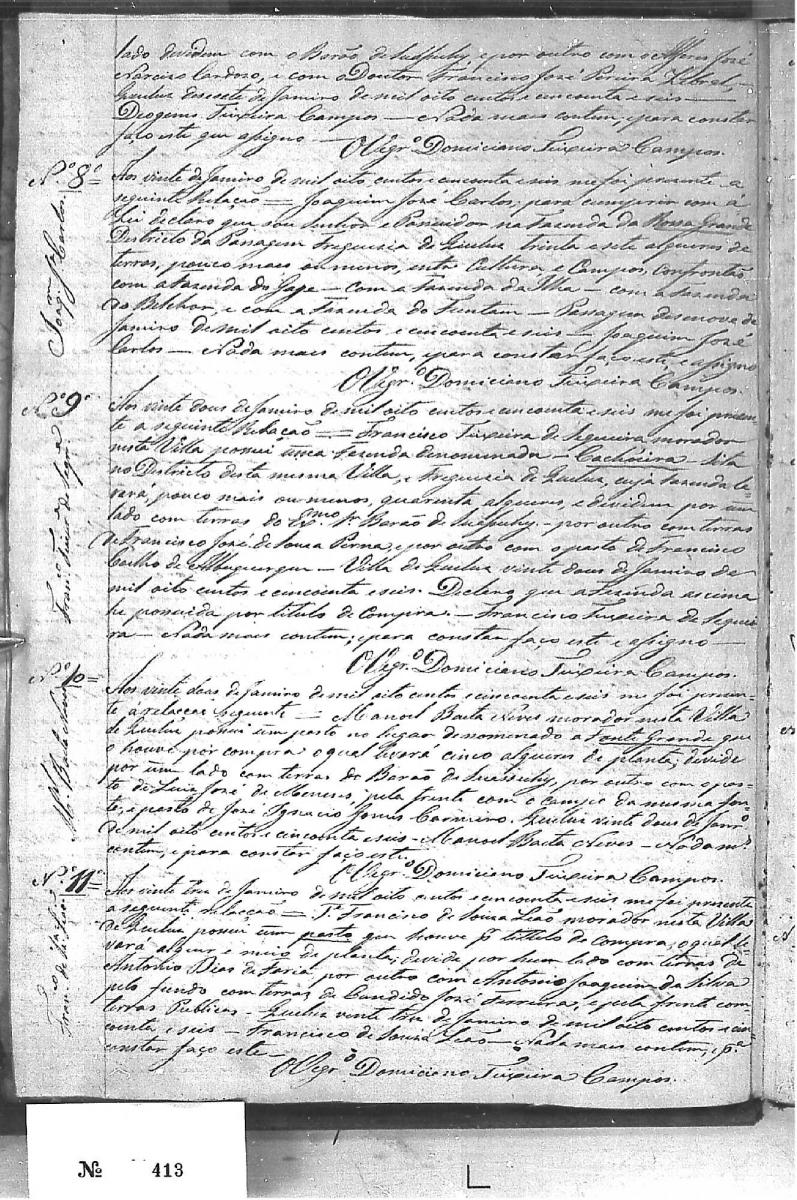 lado dividem com o Barão de Suassuhy e por outro com o Alferes José
Narcizo Cardozo, e com o Doutor Francisco José Pereira Zebral,
Queluz desesete de Janeiro de mil oito centos e cincoenta e seis —
Diogenes Teixeira Campos — Nada mais contem, e para constar
faço este que assigno —
O Vigr.º Domiciano Teixeira Campos.
N.º 8º =
Joaq.m J.e Carlos.
Aos vinte de Janeiro de mil oito centos e cincoenta e seis me foi prezente a
seguinte Relação = Joaquim José Carlos, para cumprir com a
Lei declaro que sou Senhor e Possuidor na Fazenda da Rossa Grande
Districto da Passagem Freguesia de Queluz trinta e sete alqueres de
terras, pouco mais ou menos, entre Cultura, e Campos, confrontão
com a Fazenda do Gage — com a Fazenda da Ilha — com a Fazenda
do Belchor, e com a Fazenda do — Passagem desenove de
Janeiro de mil oito centos e cincoenta e seis — Joaquim José
Carlos — Nada mais contem, e para constar faço este, e assigno
O Vigr.º Domiciano Teixeira Campos.
N.º 9º
Fran.co Teix.ra de Seqr.a
Aos vinte dous de Janeiro de mil oito centos e cincoenta e seis me foi prezen-
te a seguinte Relação = Francisco Teixeira de Sequeira morador
nesta Villa possui uma Fazenda denominada — Cachoeira — sita
no Districto desta mesma Villa, e Freguesia de Queluz, cuja Fazenda le-
vará, pouco mais ou menos, quarenta alqueres, e dividem por um
lado com terras do Ex.mo Sr. Barão de Suassuhy — por outro com terras
de Francisco José de Souza Penna, e por outro com o pasto de Francisco
Coelho de Albuquerque — Villa de Queluz vinte dous de Janeiro de
mil oito centos e cincoenta e seis. Declaro que a Fazenda assima
he possuida por titulo de Compra. — Francisco Teixeira de Sequei-
ra — Nada mais contem, e para constar faço este e assigno —
O Vigr.º Domiciano Teixeira Campos.
N.º 10 =
M.el Baeta Neves
Aos vinte dous de Janeiro de mil oito centos e cincoenta e seis me foi prezen-
te a relaçao seguente — Manoel Baeta Neves morador nesta Villa
de Queluz possui um pasto no lugar denominado a Fonte Grande que
o houve por compra o qual levará cinco alqueres de planta, divide
por um lado com terras do Barão de Suassuhy, por outro com o pas-
to de Luiz José de Menezes, pela frente com o campo da mesma fon-
te, e pasto de José Ignacio Gomes Carneiro. Queluz vinte dous de Janr.º
de mil oito centos e cincoenta e seis — Manoel Baeta Neves — Nada m.s
contem, e para constar faço este.
O Vigr.º Domiciano Teixeira Campos.
N.º 11 =
Fran.co de Sz.a Leão
Aos vinte tres de Janeiro de mil oito centos e cincoenta e seis me foi prezente
a seguinte relacção = Francisco de Souza Leão morador nesta Villa
de Queluz possui um pasto que houve p.r titullo de compra, o qual le-
vará alquer e meio de planta, divide por hum lado com terras de
Antonio Dias de Faria por outro com Antonio Joaquim da Silva
pelo fundo com terras de Candido José Ferreira, e pela frente com
terras Publicas — Queluz vinte tres de Janeiro de mil oito centos e cin-
coenta, e seis — Francisco de Souza Leão — Nada mais contem, e p.a
constar faço este —
O Vigr.º Domiciano Teixeira Campos.
Nº 413